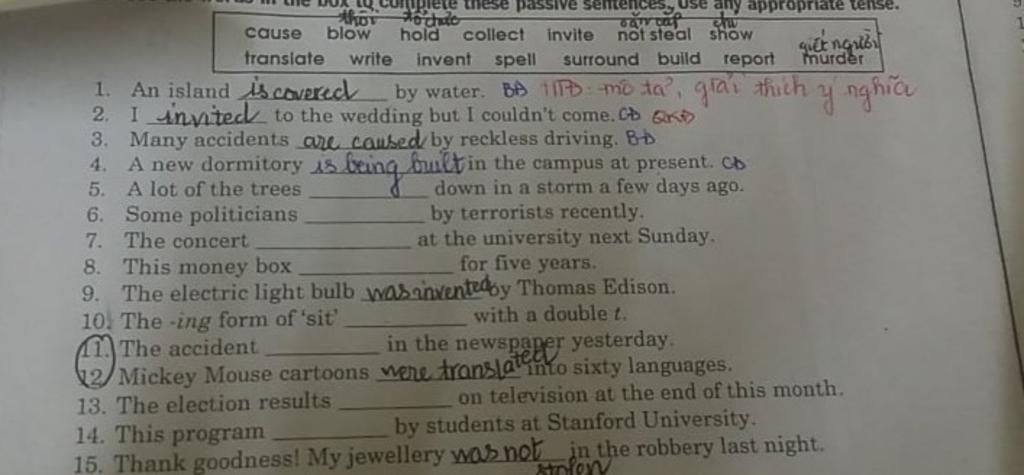 in the box to complete these passive sentences, Use any appropriate tense.
thổi tổ chức căn cắp chu
cause blow hold collect invite not steal show
giết người
translate write invent spell surround build report murder
1. An island is covered by water. BĐ HTĐ: mô tả, giải thích ý nghĩa
2. I invited to the wedding but I couldn't come. CĐ QKĐ
3. Many accidents are caused by reckless driving. BĐ
4. A new dormitory is being built in the campus at present. CĐ
5. A lot of the trees ________ down in a storm a few days ago.
6. Some politicians ________ by terrorists recently.
7. The concert ________ at the university next Sunday.
8. This money box ________ for five years.
9. The electric light bulb was invented by Thomas Edison.
10. The -ing form of 'sit' ________ with a double t.
11. The accident ________ in the newspaper yesterday.
12. Mickey Mouse cartoons were translated into sixty languages.
13. The election results ________ on television at the end of this month.
14. This program ________ by students at Stanford University.
15. Thank goodness! My jewellery was not in the robbery last night.
stolen